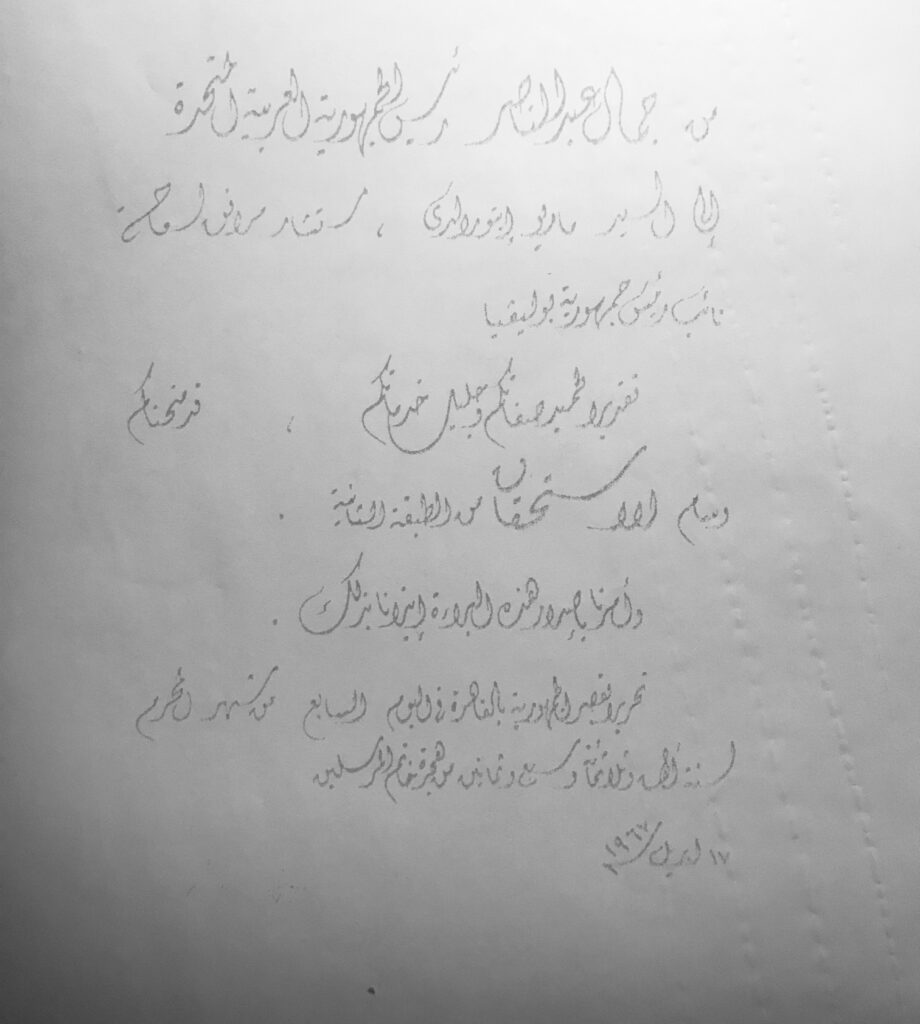 من جمال عبد الناصر رئيس الجمهورية العربية المتحدة
إلى السيد ماريو ، مستشار مرافق لسماحة
نائب رئيس جمهورية بوليفيا
تقديرا لحميد صفاتكم وجليل خدماتكم ، قد منحناكم
وسام الاستحقاق من الطبقة الثانية .
وأمرنا بإصدار هذه البراءة إيذانا بذلك .
تحريرا بقصر الجمهورية بالقاهرة فى اليوم السابع من شهر المحرم
لسنة ألف وثلاثمائة وسبع وثمانين من هجرة خاتم المرسلين
١٧ ابريل ١٩٦٧